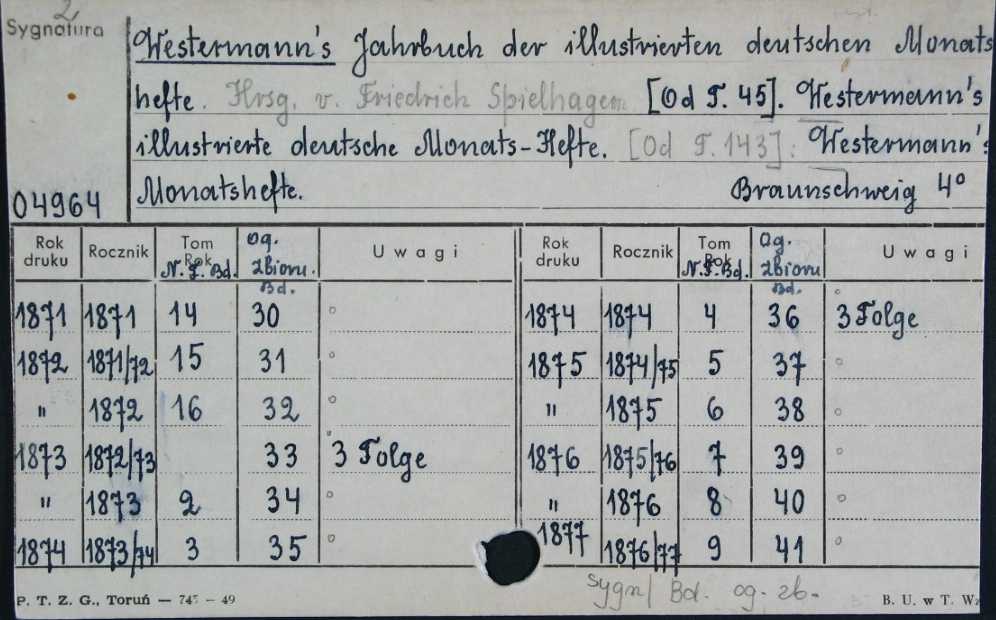 2
Sygnatura
Westermann's Jahrbuch der illustrierten deutschen Monats
hefte. Hrsg. v. Friedrich Spielhagen [Od T. 45]. Westermann's
illustrierte deutsche Monats-Hefte. [Od T. 143]. Westermann's
04964 Monatshefte. Braunschweig 4°
Rok druku Rocznik Tom Rok N. F. Bd. Og. Zbioru. Bd. Uwagi Rok druku Rocznik Tom Rok N. F. Bd. Og. Zbioru Bd. Uwagi
1871 1871 14 30 ° 1874 1874 4 36 3 Folge
1872 1871/72 15 31 ° 1875 1874/75 5 37 °
" 1872 16 32 ° " 1875 6 38 °
1873 1872/73 33 3 Folge 1876 1875/76 7 39 °
" 1873 2 34 ° " 1876 8 40 °
1874 1873/74 3 35 ° 1877 1876/77 9 41 °
sygn/ Bd. og. zb.
P. T. Z. G., Toruń — 747 — 49 B. U. w T. Wz